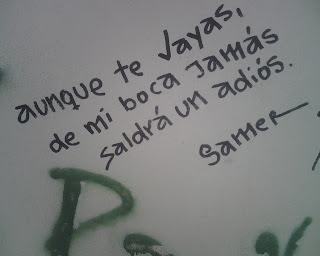 aunque te vayas,
de mi boca jamás
saldrá un adiós.
Samer